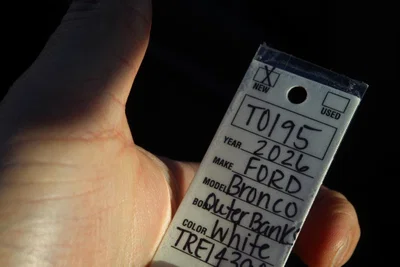 X
NEW
USED
T0195
YEAR 2026
MAKE FORD
MODEL Bronco
Outer Banks
COLOR White